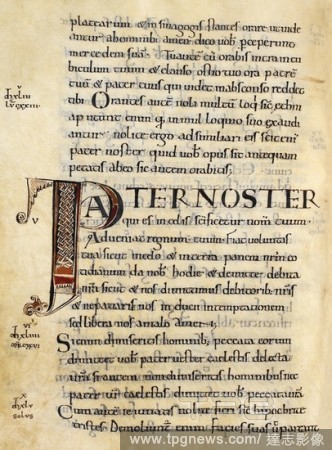 platearum & in sinagogis stantes orare uideant
antur abhominib; amen dico uob; perceperunt
mercedem suam. Tu autem cu orabis intra in cu
biculum tuum & clauso ostio tuo ora patre
tuu & pater tuus qui uidet in absconso reddet
tibi Orantes aute nolite multum loqui sic &hni
putant enim qd in multiloquio suo exaudi
antur nolite ergo adsimilari eis scit eni
pater noster quid uob; opus sit antequam
petatis ab eo sic autem orabitis,
PATERNOSTER
qui es in celis scificetur nom tuum
Adueniat regnum tuum fiat uoluntas
tua sicut in celo & in terra panem nrm co
tidianum da nob; hodie & demitte nob debita
nra sicut & nos dimittimus debitorib; nris
& ne patiaris nos induci in temptationem
sed libera nos a malo amen,
Si enim dimiseritis hominib; peccata eorum
dimittet uob; pater uester caelestis delicta
ura si autem non dimiseritis hominibus nec
pater ur caelestis dimittet uob; peccata ura
Cum autem ieiunatis nolite fieri sic hipochrite
tristes Demoliunt enim facies suas ut pareant
www.tpgnews.com/ 達志影像